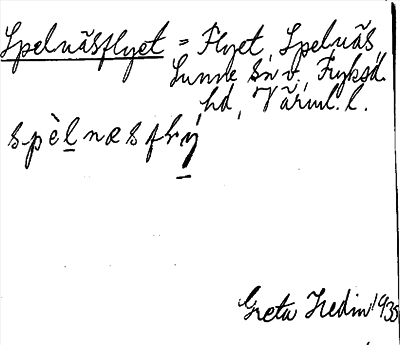 Spelnäsflyet = Flyet, Spelnäs,
Sunne sn v., Fryksd.
hd, Värml. l.
spèlnæsfly
Greta Hedin 1935